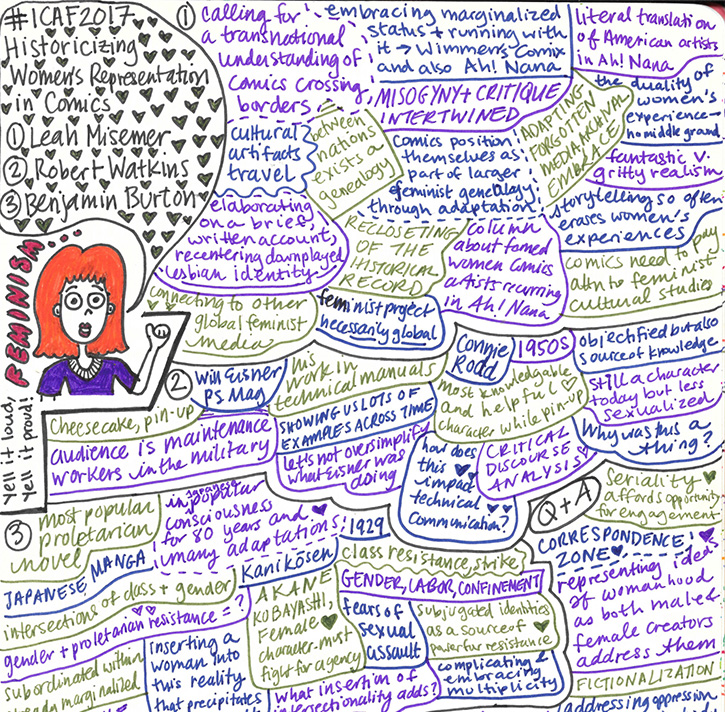 #ICAF2017
Historicizing
Women's Representation
in Comics
① Leah Misemer
② Robert Watkins
③ Benjamin Burton
FEMINISM...
Yell it loud,
Yell it proud!
①
calling for
a transnational
understanding of
comics crossing
borders
embracing marginalized
status + running with
it → Wimmen's Comix
and also Ah! Nana
literal translation
of American artists
in Ah! Nana
MISOGYNY + CRITIQUE
INTERTWINED
the duality of
women's
experience →
no middle ground
cultural
artifacts
travel
between
nations
exists a
genealogy
Comics position
themselves as
part of larger
feminist genealogy
through adaptation
ADAPTING
FORGOTTEN
MEDIA ARCHIVAL
EMBRACE
fantastic v.
gritty realism
storytelling so often
erases women's
experiences
elaborating
on a brief
written account,
recentering downplayed
lesbian identity
RECLOSETING
OF THE
HISTORICAL
RECORD
column
about famed
women comics
artists recurring
in Ah! Nana
comics need to pay
attn to feminist
cultural studies
connecting to other
global feminist
media
feminist project
necessarily global
②
Will Eisner
PS Mag
his
work in
technical manuals
Connie
Rodd
1950s
objectified but also
source of knowledge
most knowledgable
and helpful
character while pin-up
still a character
today but less
sexualized
Cheesecake, pin-up
audience is maintenance
workers in the military
SHOWING US LOTS OF
EXAMPLES ACROSS TIME
let's not oversimplify
what Eisner was
doing
how does
this
impact
technical
communication?
CRITICAL
DISCOURSE
ANALYSIS
Why was this a
thing?
③
most popular
proletarian
novel
in Japanese popular
consciousness
for 80 years and
many adaptations
1929
Kani kōsen
JAPANESE MANGA
intersections of class + gender
gender + proletarian resistance = ?
class resistance, strike
GENDER, LABOR, CONFINEMENT
AKANE
KOBAYASHI,
Female
character must
fight for agency
fears of
sexual
assault
subjugated identities
as a source of
powerful resistance
subordinated within
already marginalized
inserting a
woman into
this reality
that precipitates
what insertion of
intersectionality adds?
complicating &
embracing
multiplicity
Q + A
Seriality
affords opportunity
for engagement
CORRESPONDENCE
ZONE
representing idea
of womanhood
as both male &
female creators
address them
FICTIONALIZATION
addressing oppression